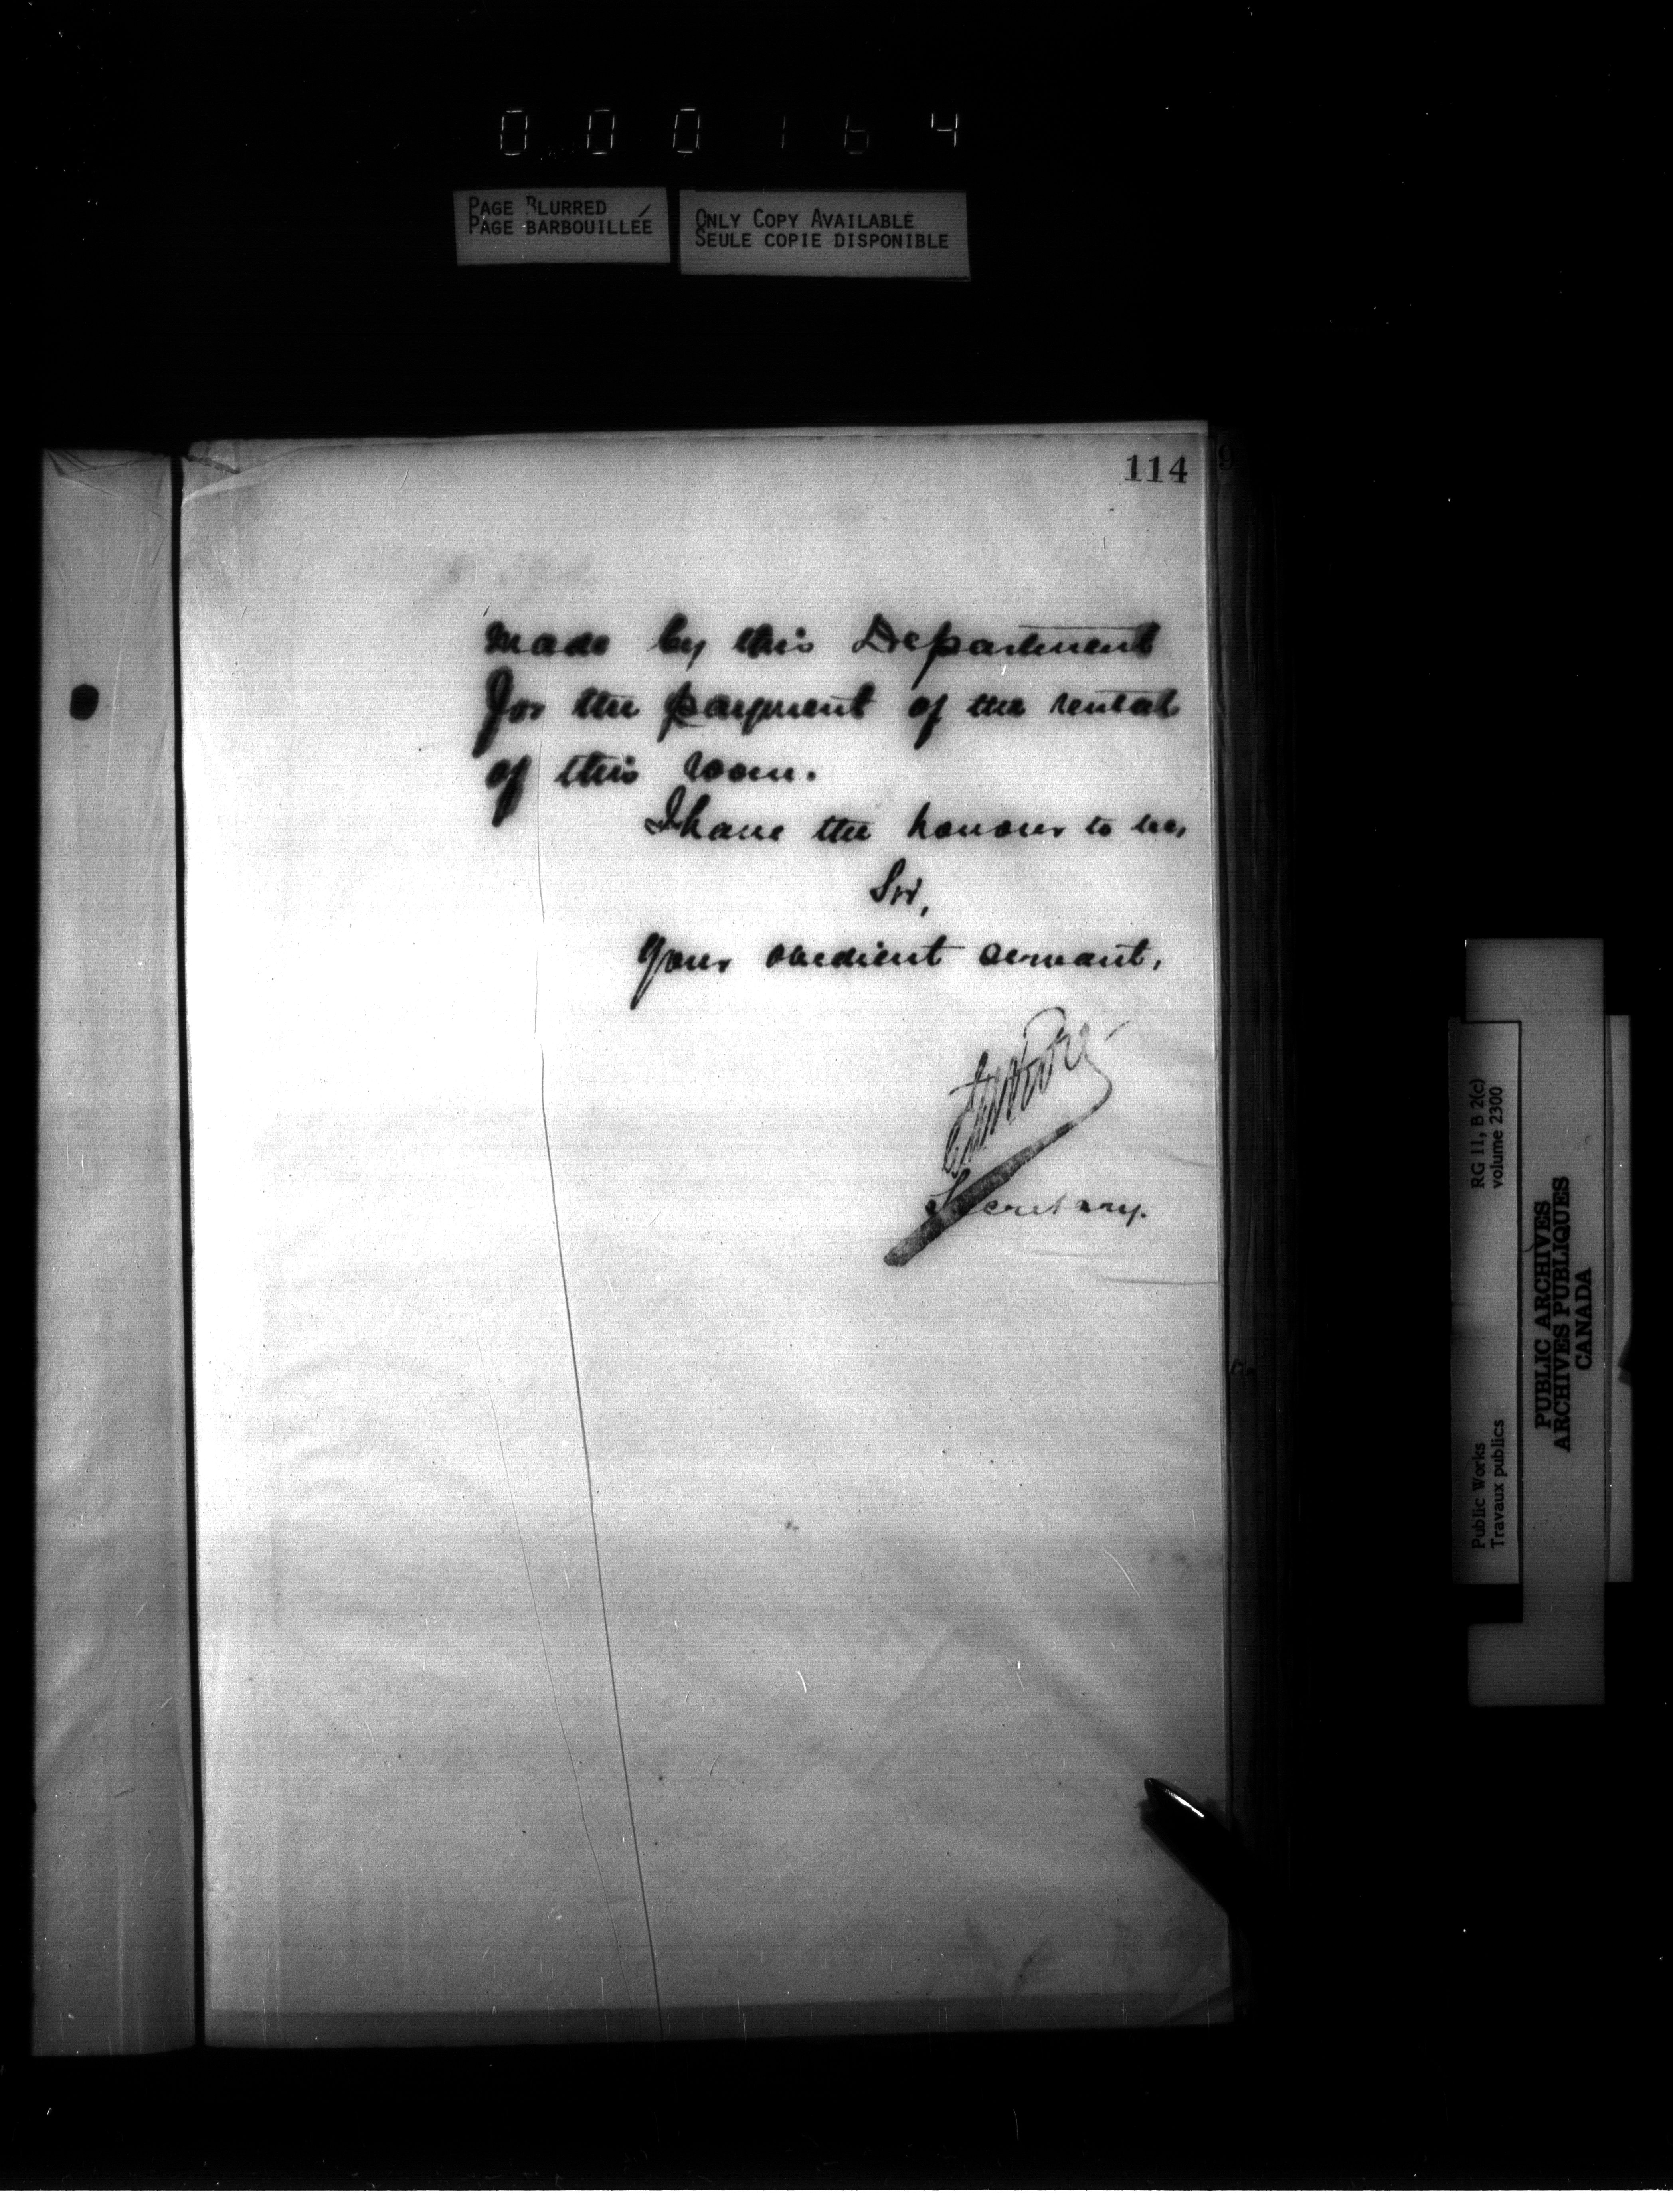 000164
PAGE BLURRED
PAGE BARBOUILLÉE
ONLY COPY AVAILABLE
SEULE COPIE DISPONIBLE
114
9
made by this Department
for the payment of the rental
of this room.
I have the honour to be,
Sir,
Your obedient servant,
Secretary.
Public Works
Travaux publics
RG 11, B 2(c)
volume 2300
PUBLIC ARCHIVES
ARCHIVES PUBLIQUES
CANADA